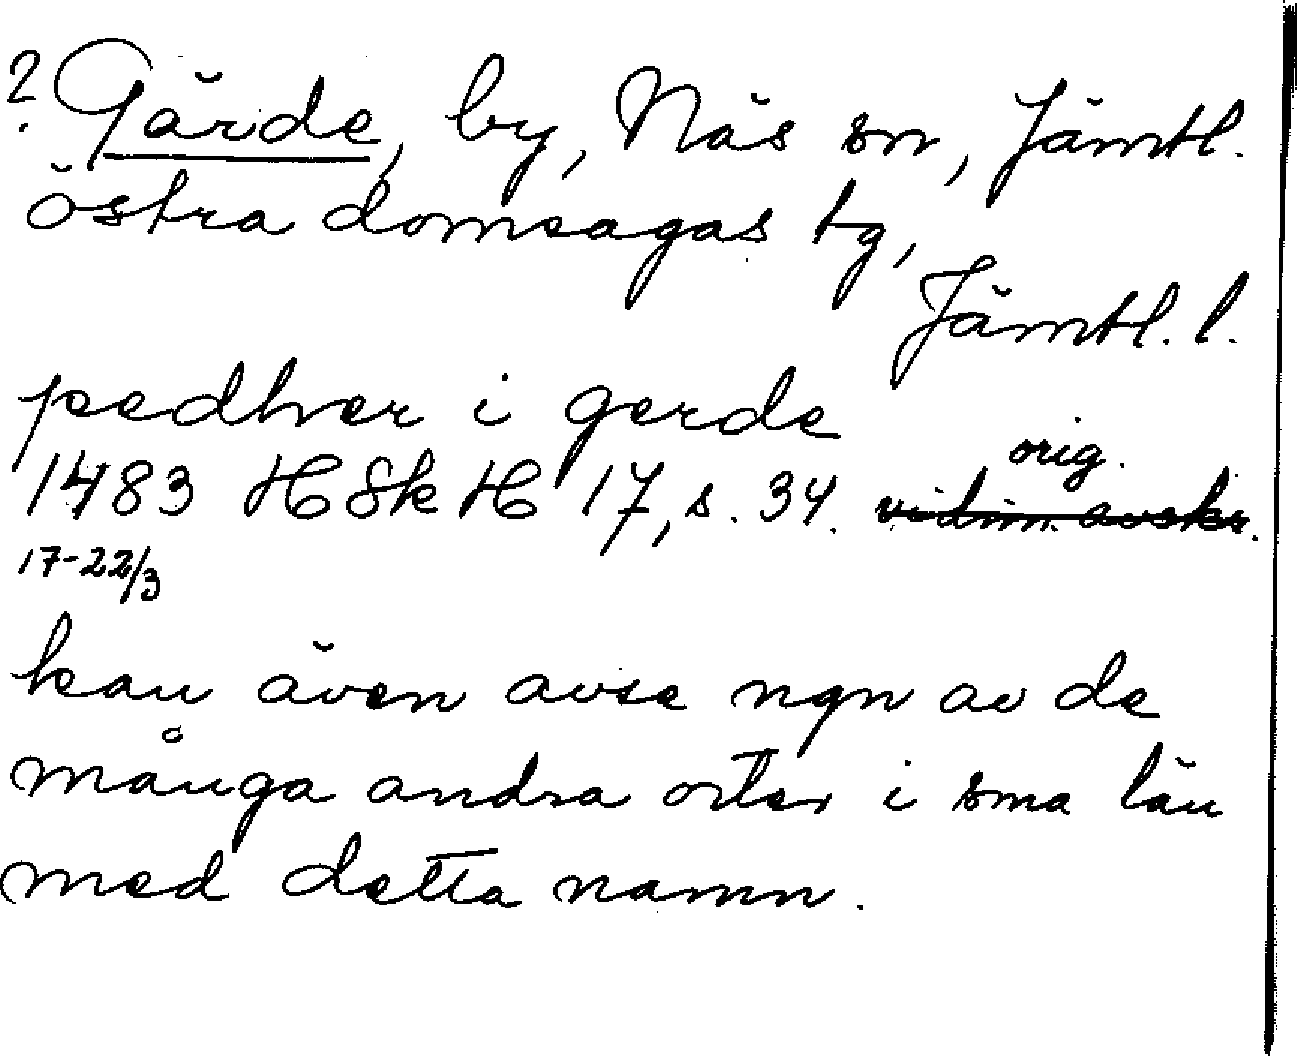 ? Gärde, by, Näs sn, Jämtl.
östra domsagas tg,
Jämtl. l.
pedher i gerde
orig.
1483 HSkH 17, s. 34. vidim. avskr.
17-22/3
kan även avse ngn av de
många andra orter i sma län
med detta namn.